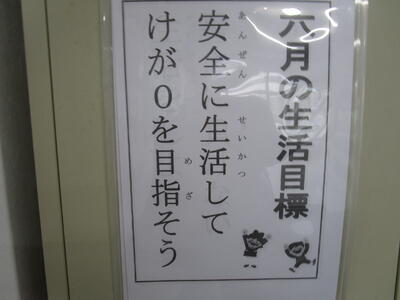 六月の生活目標
安全に生活して
あんぜん せいかつ
けが0を目指そう
めざ